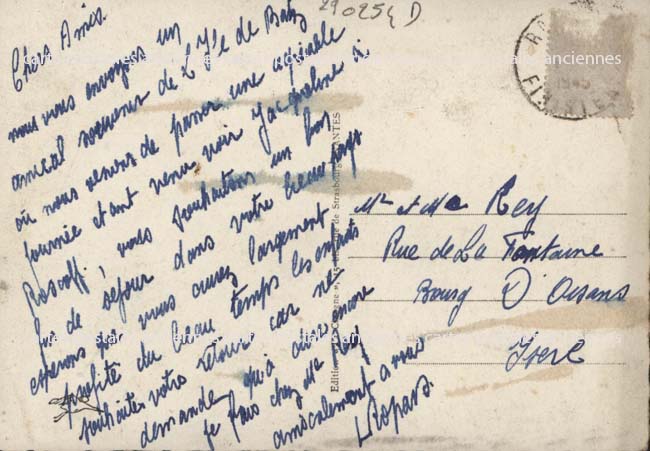 290254 D
Chers Amis.
nous vous envoyons un
amical souvenir de L'Île de Batz
où nous venons de passer une agréable
journée étant venu voir Jacqueline à
Roscoff, vous souhaitons un bon
séjour dans votre beau pays
espérons que vous aurez largement
profité du beau temps les enfants
souhaite votre retour car ne
demande qu'à aller encore
chez Mme Rey
amicalement a vous
Ropars.
Mr et Mme Rey
Rue de La Fontaine
Bourg D'Oisans
Isère
rue de Strasbourg NANTES
1945
FINISTERE